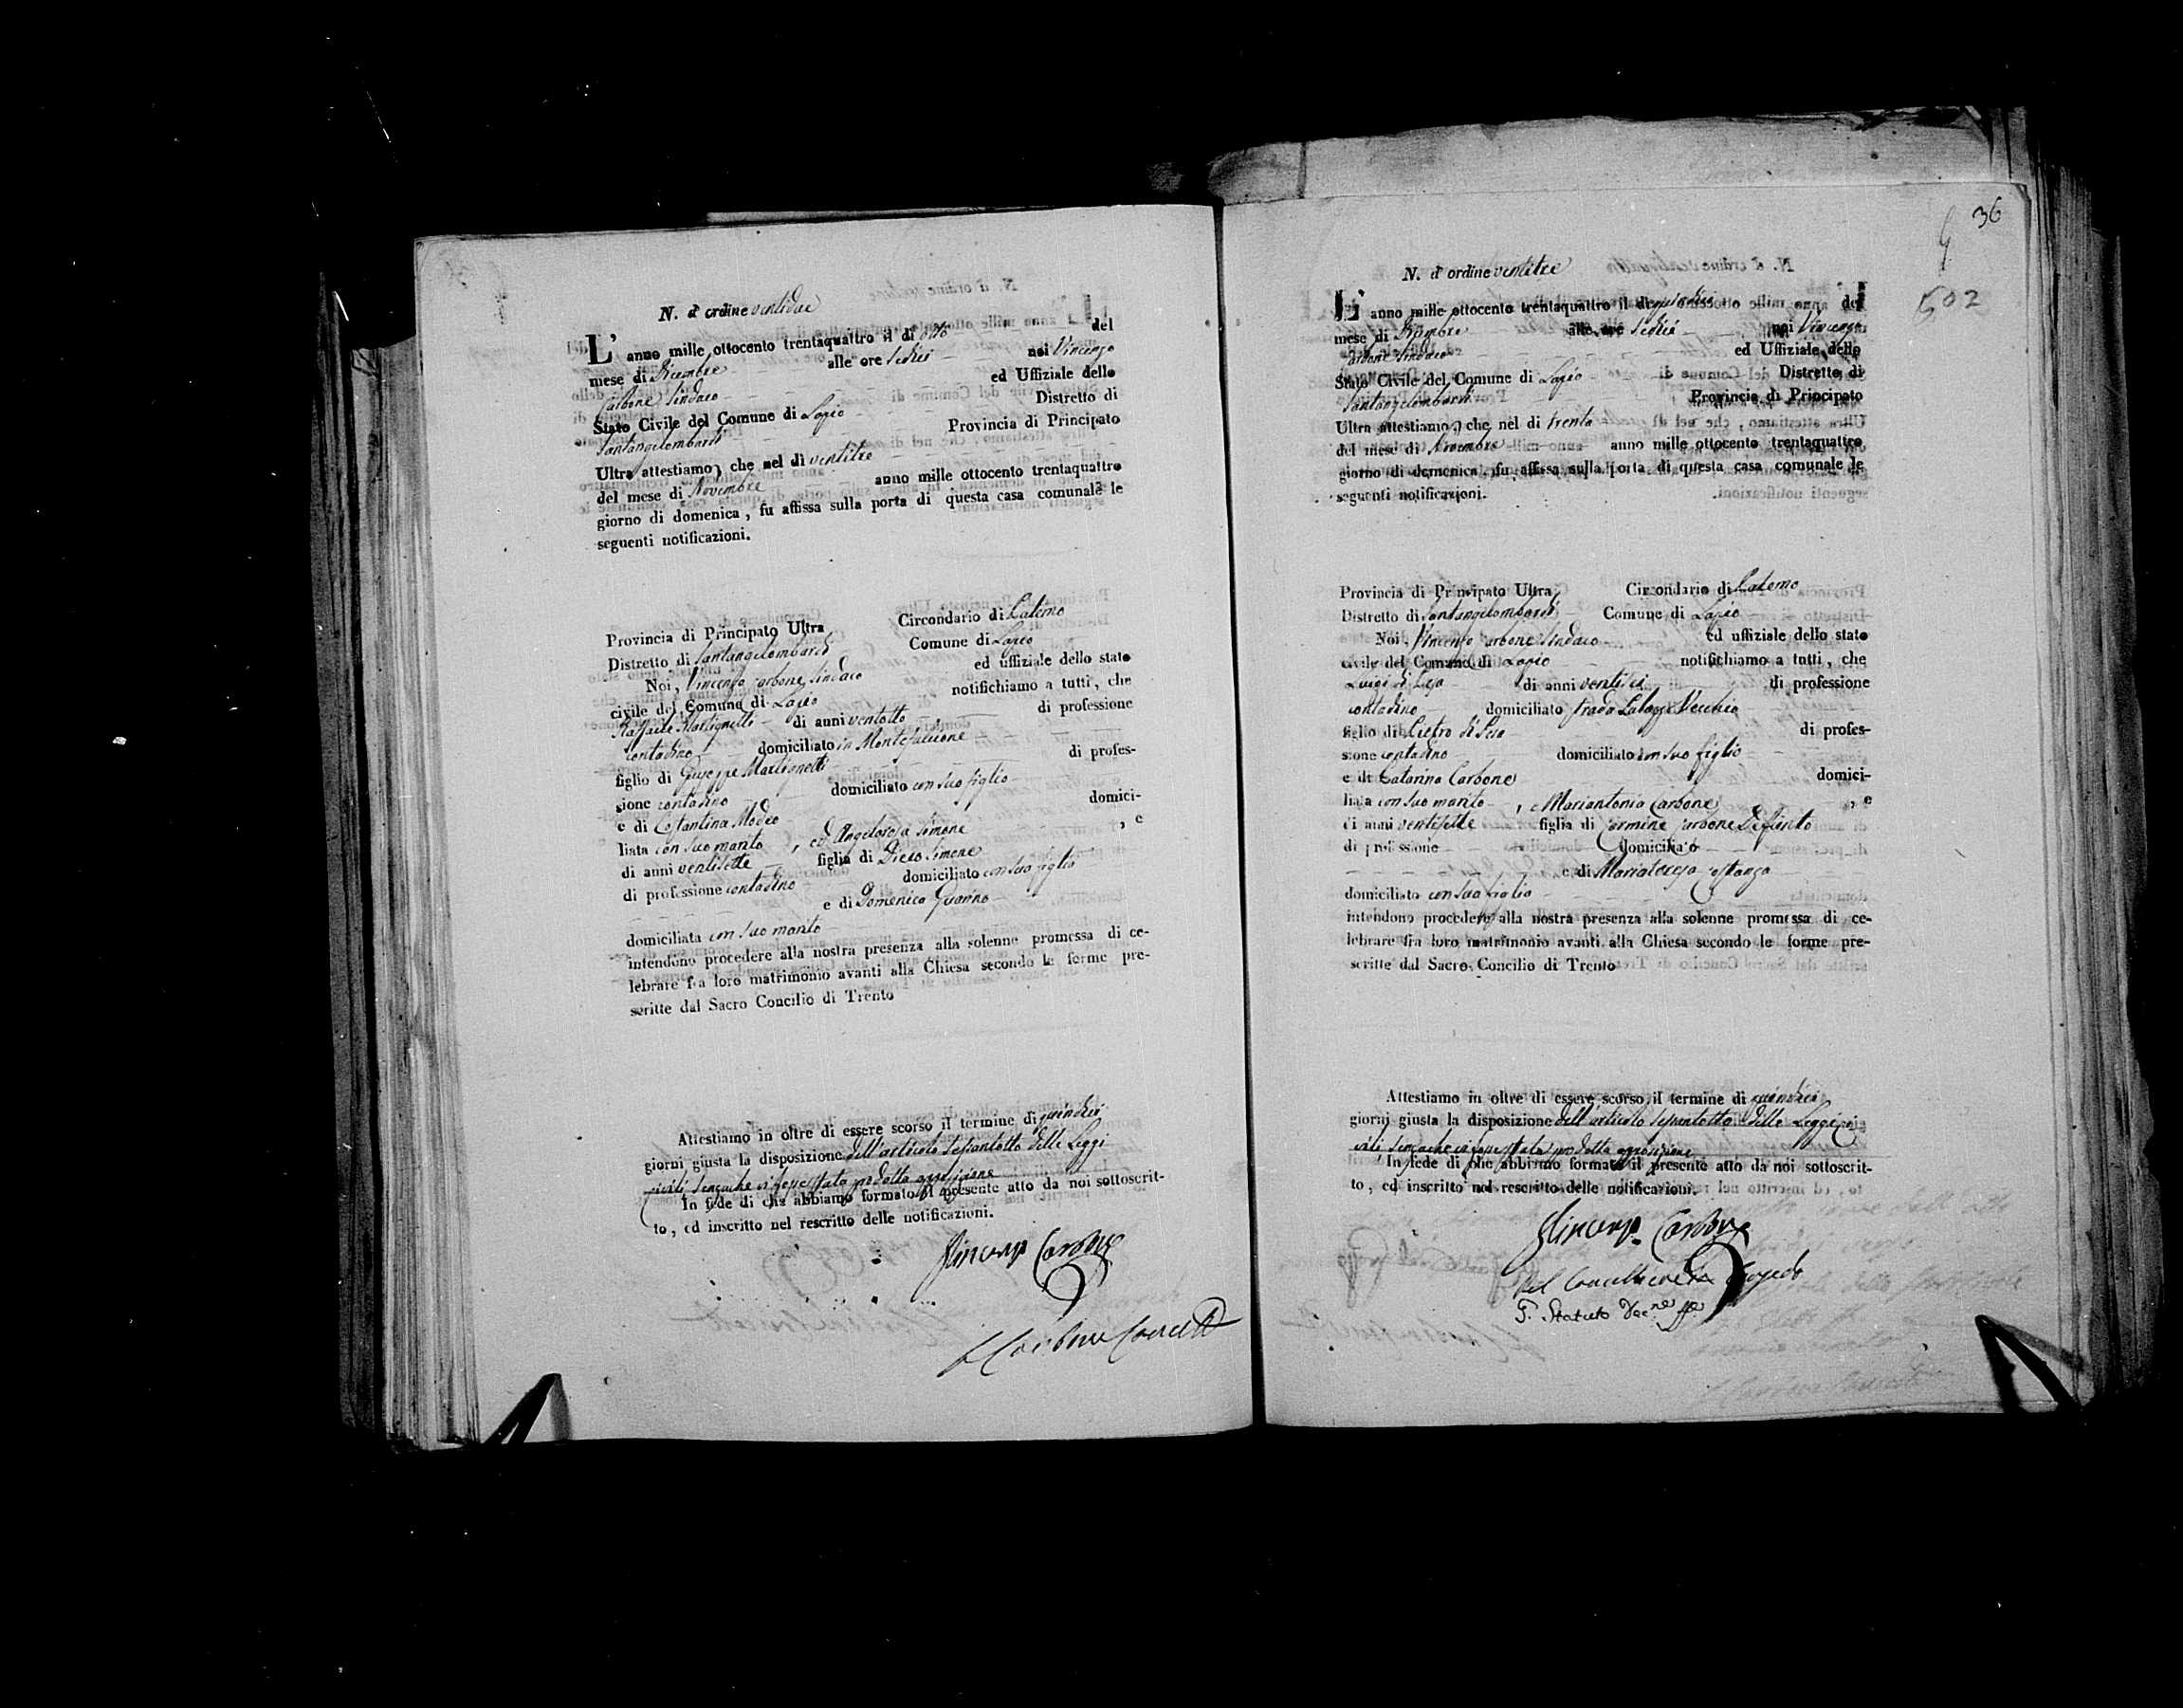 N. d' ordine ventidue
L' anno mille ottocento trentaquattro il di otto del
mese di Dicembre alle ore sedici noi Vincenzo
Carbone Sindaco ed Uffiziale dello
Stato Civile del Comune di Lapio Distretto di
Santangelombardi Provincia di Principato
Ultra attestiamo, che nel dì ventitre
del mese di Novembre anno mille ottocento trentaquattro
giorno di domenica, fu affissa sulla porta di questa casa comunale le
seguenti notificazioni.
Provincia di Principato Ultra Circondario di Paterno
Distretto di Santangelombardi Comune di Lapio
Noi, Vincenzo Carbone Sindaco ed uffiziale dello stato
civile del Comune di Lapio notifichiamo a tutti, che
Raffaele Martignetti di anni ventotto di professione
contadino domiciliato in Montefalcione
figlio di Giuseppe Martignetti di profes-
sione contadino domiciliato con suo figlio
e di Costantina Modeo domici-
liata con suo marito, ed Angelorosa Simone, e
di anni ventisette figlia di Simone
di professione contadino domiciliato con sua figlia
e di Domenica Guarino
domiciliata con suo marito
intendono procedere alla nostra presenza alla solenne promessa di ce-
lebrare fra loro matrimonio avanti alla Chiesa secondo le forme pre-
scritte dal Sacro Concilio di Trento
Attestiamo in oltre di essere scorso il termine di quindici
giorni giusta la disposizione dell'articolo sessantotto delle Leggi
civili senzache vi fosse stata prodotta opposizione
In fede di che abbiamo formato il presente atto da noi sottoscrit-
to, ed inscritto nel rescritto delle notificazioni.
Vincenzo Carbone
Carbone
36
502
N. d' ordine ventitre
L' anno mille ottocento trentaquattro il di quindici del
mese di Dicembre alle ore sedici noi Vincenzo
Carbone Sindaco ed Uffiziale dello
Stato Civile del Comune di Lapio Distretto di
Santangelombardi Provincia di Principato
Ultra attestiamo, che nel di trenta
del mese di Novembre anno mille ottocento trentaquattro
giorno di domenica, fu affissa sulla porta di questa casa comunale le
seguenti notificazioni.
Provincia di Principato Ultra Circondario di Paterno
Distretto di Santangelombardi Comune di Lapio
Noi, Vincenzo Carbone Sindaco ed uffiziale dello stato
civile del Comune di Lapio notifichiamo a tutti, che
Luigi di di anni ventisei di professione
contadino domiciliato strada Vecchio
figlio di Pietro di di profes-
sione contadino domiciliato con suo figlio
e di Catarina Carbone domici-
liata con suo marito, e Mariantonia Carbone, e
di anni ventisette figlia di Carmine Carbone Defunto
di professione domiciliato
e di Mariateresa Costanza
domiciliato con sua figlia
intendono procedere alla nostra presenza alla solenne promessa di ce-
lebrare fra loro matrimonio avanti alla Chiesa secondo le forme pre-
scritte dal Sacro Concilio di Trento
Attestiamo in oltre di essere scorso il termine di quindici
giorni giusta la disposizione dell'articolo sessantotto delle Leggi ci
vili, senzache vi fosse stata prodotta opposizione
In fede di che abbiamo formato il presente atto da noi sottoscrit-
to, ed inscritto nel rescritto delle notificazioni.
Vincenzo Carbone
Pel Cancelliere